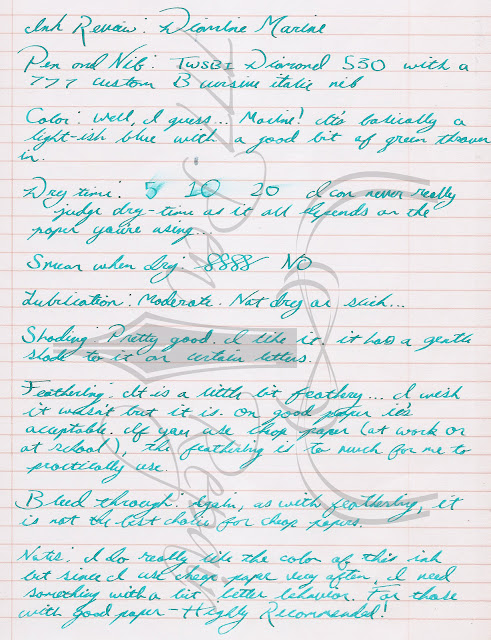 Ink Review: Diamine Marine
Pen and Nib: TWSBI Diamond 530 with a
777 custom B cursive italic nib
Color: Well, I guess... Marine! It's basically a
light-ish blue with a good bit of green thrown
in.
Dry time: 5 10 20 I can never really
judge dry-time as it all depends on the
paper you're using...
Smear when dry: 8888 NO
Lubrication: Moderate. Not dry or slick...
Shading: Pretty good. I like it. it has a gentle
shade to it on certain letters.
Feathering: It is a little bit feathery... I wish
it wasn't but it is. On good paper it's
acceptable. If you use cheap paper (at work or
at school), the feathering is to much for me to
practically use.
Bleed through: Again, as with feathering, it
is not the best choice for cheap papers.
Notes: I do really like the color of this ink
but since I use cheap paper very often, I need
something with a bit better behavior. For those
with good paper - Highly Recommended!